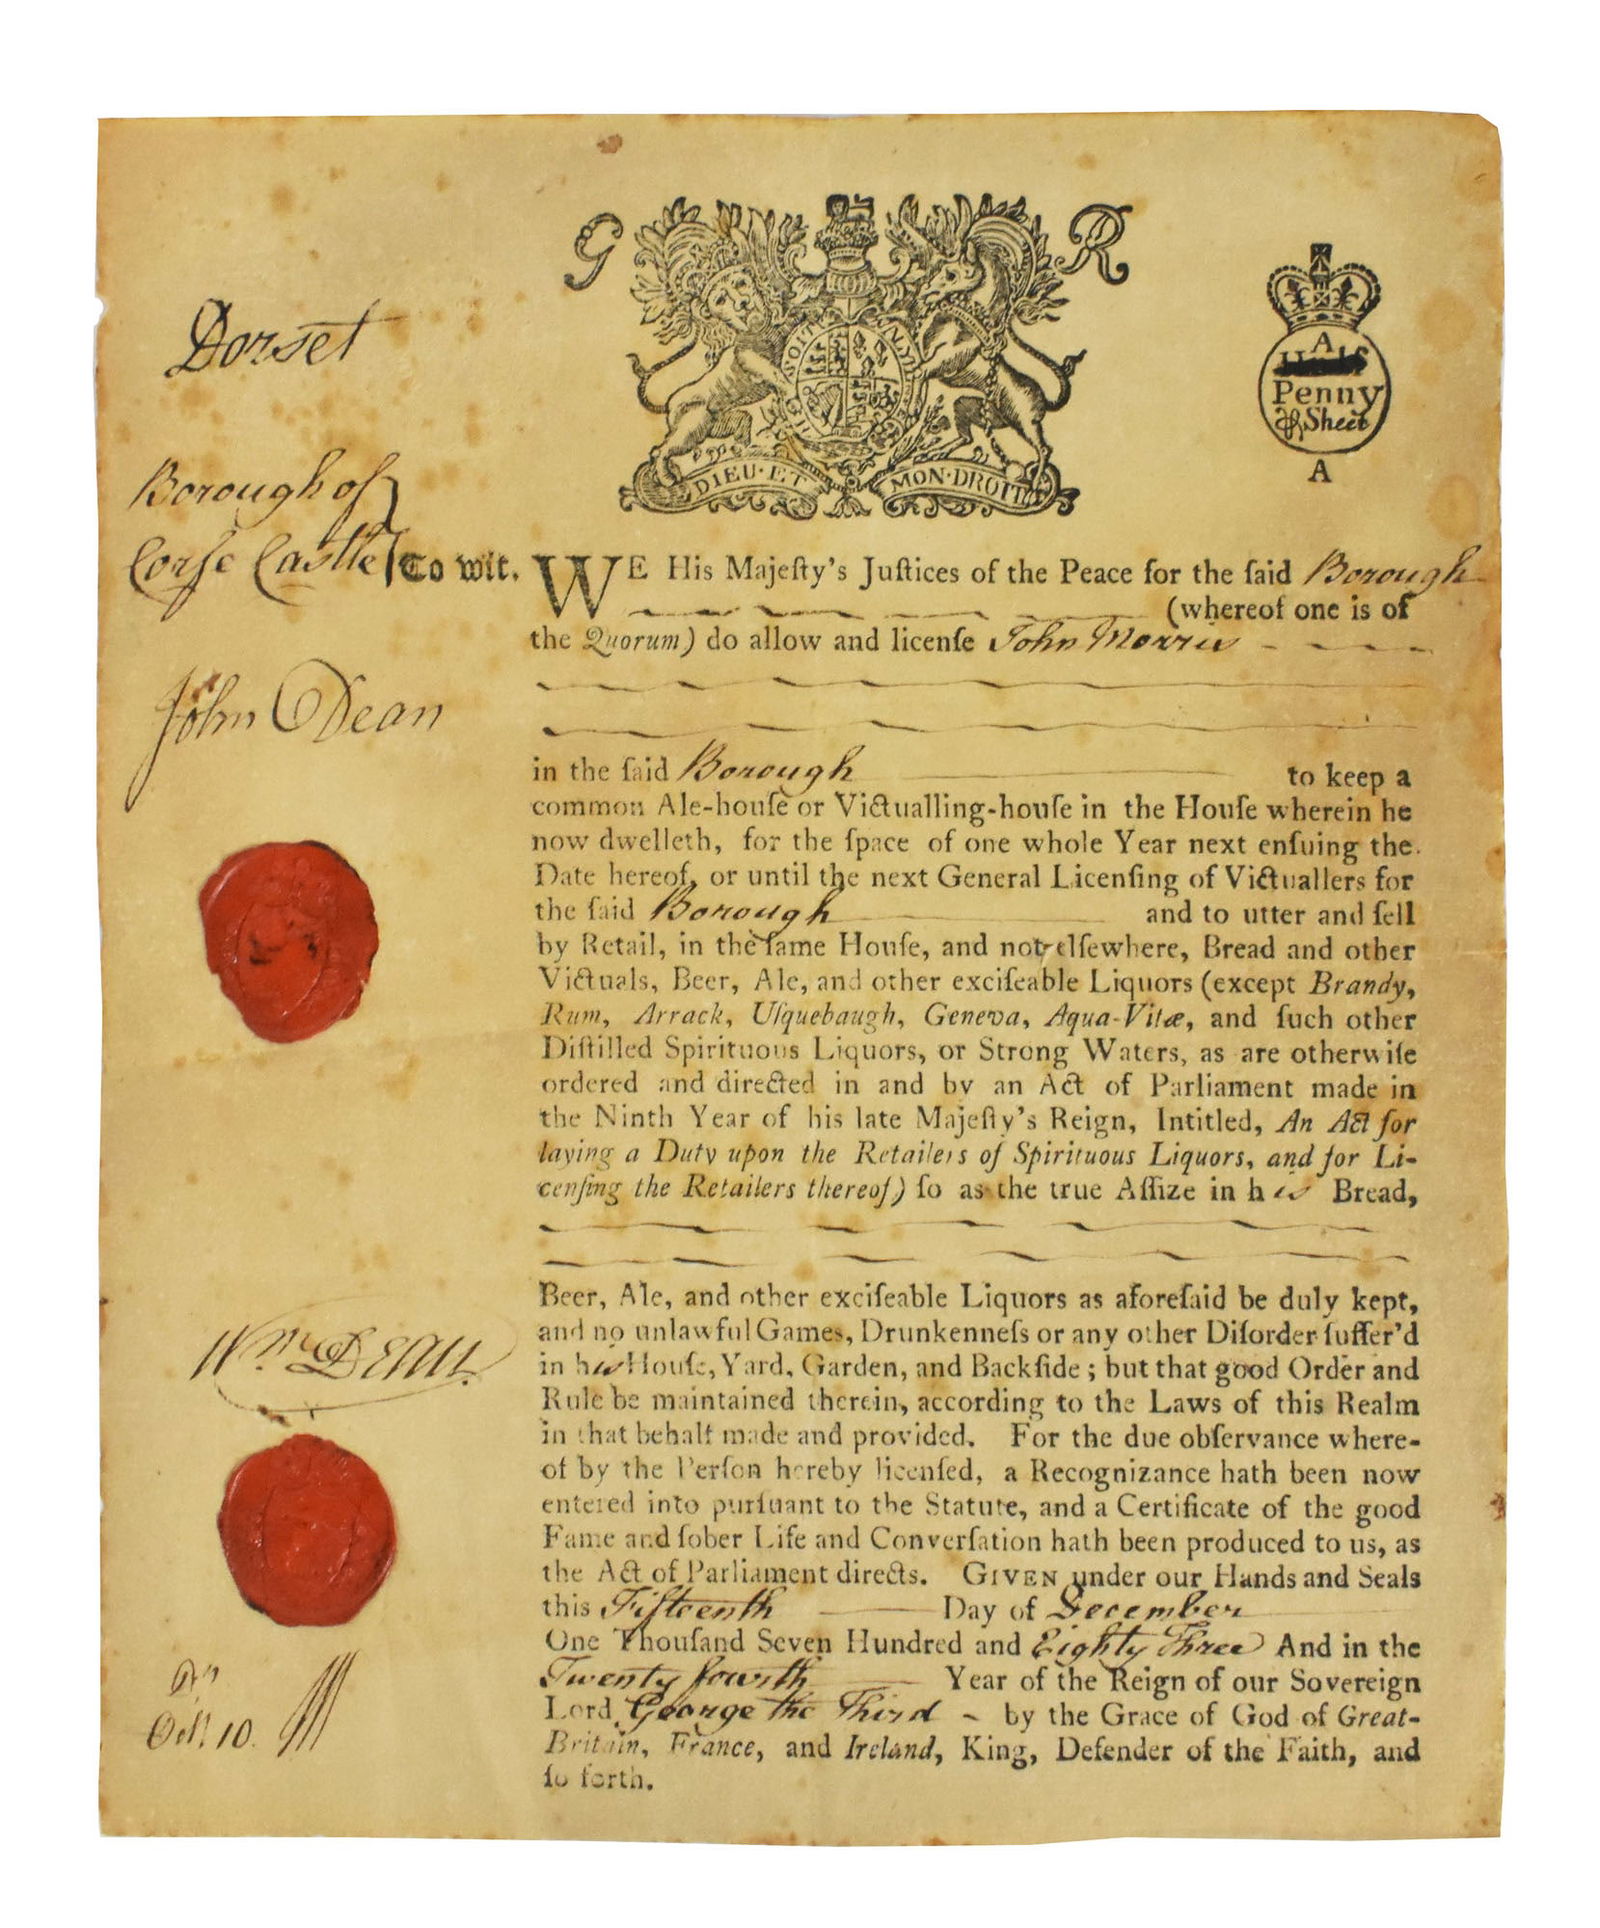 G R
Dorset
A
Half
Penny
℔ Sheet
A
DIEU·ET MON·DROIT
Borough of
Corfe Castle } To wit.
WE His Majeſty's Juſtices of the Peace for the ſaid Borough
(whereof one is of
the Quorum) do allow and licenſe John Morris
John Dean
in the ſaid Borough to keep a
common Ale-houſe or Victualling-houſe in the Houſe wherein he
now dwelleth, for the ſpace of one whole Year next enſuing the
Date hereof, or until the next General Licenſing of Victuallers for
the ſaid Borough and to utter and ſell
by Retail, in the ſame Houſe, and not elſewhere, Bread and other
Victuals, Beer, Ale, and other exciſeable Liquors (except Brandy,
Rum, Arrack, Uſquebaugh, Geneva, Aqua-Vitæ, and ſuch other
Diſtilled Spirituous Liquors, or Strong Waters, as are otherwiſe
ordered and directed in and by an Act of Parliament made in
the Ninth Year of his late Majeſty's Reign, Intitled, An Act for
laying a Duty upon the Retailers of Spirituous Liquors, and for Li-
cenſing the Retailers thereof) ſo as the true Aſſize in his Bread,
Beer, Ale, and other exciſeable Liquors as aforeſaid be duly kept,
and no unlawful Games, Drunkenneſs or any other Diſorder ſuffer'd
in his Houſe, Yard, Garden, and Backſide; but that good Order and
Wm. Dean.
Rule be maintained therein, according to the Laws of this Realm
in that behalf made and provided. For the due obſervance where-
of by the Perſon hereby licenſed, a Recognizance hath been now
entered into purſuant to the Statute, and a Certificate of the good
Fame and ſober Life and Converſation hath been produced to us, as
the Act of Parliament directs. GIVEN under our Hands and Seals
this Fifteenth Day of December
One Thouſand Seven Hundred and Eighty Three And in the
Twenty fourth Year of the Reign of our Sovereign
Lord George the Third by the Grace of God of Great-
Britain, France, and Ireland, King, Defender of the Faith, and
ſo forth.
10.